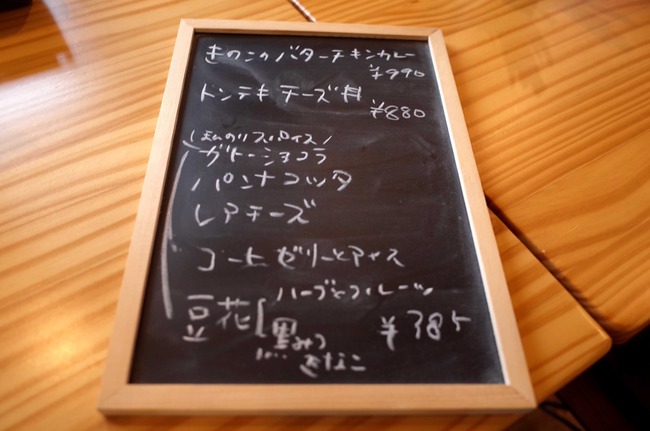 きのこのバターチキンカレー
¥990
トンテキチーズ丼
¥880
ほんのりスパイス
ガトーショコラ
パンナコッタ
レアチーズ
コーヒーゼリーとアイス
豆花
ハーブとフルーツ
黒みつ
きなこ
¥385